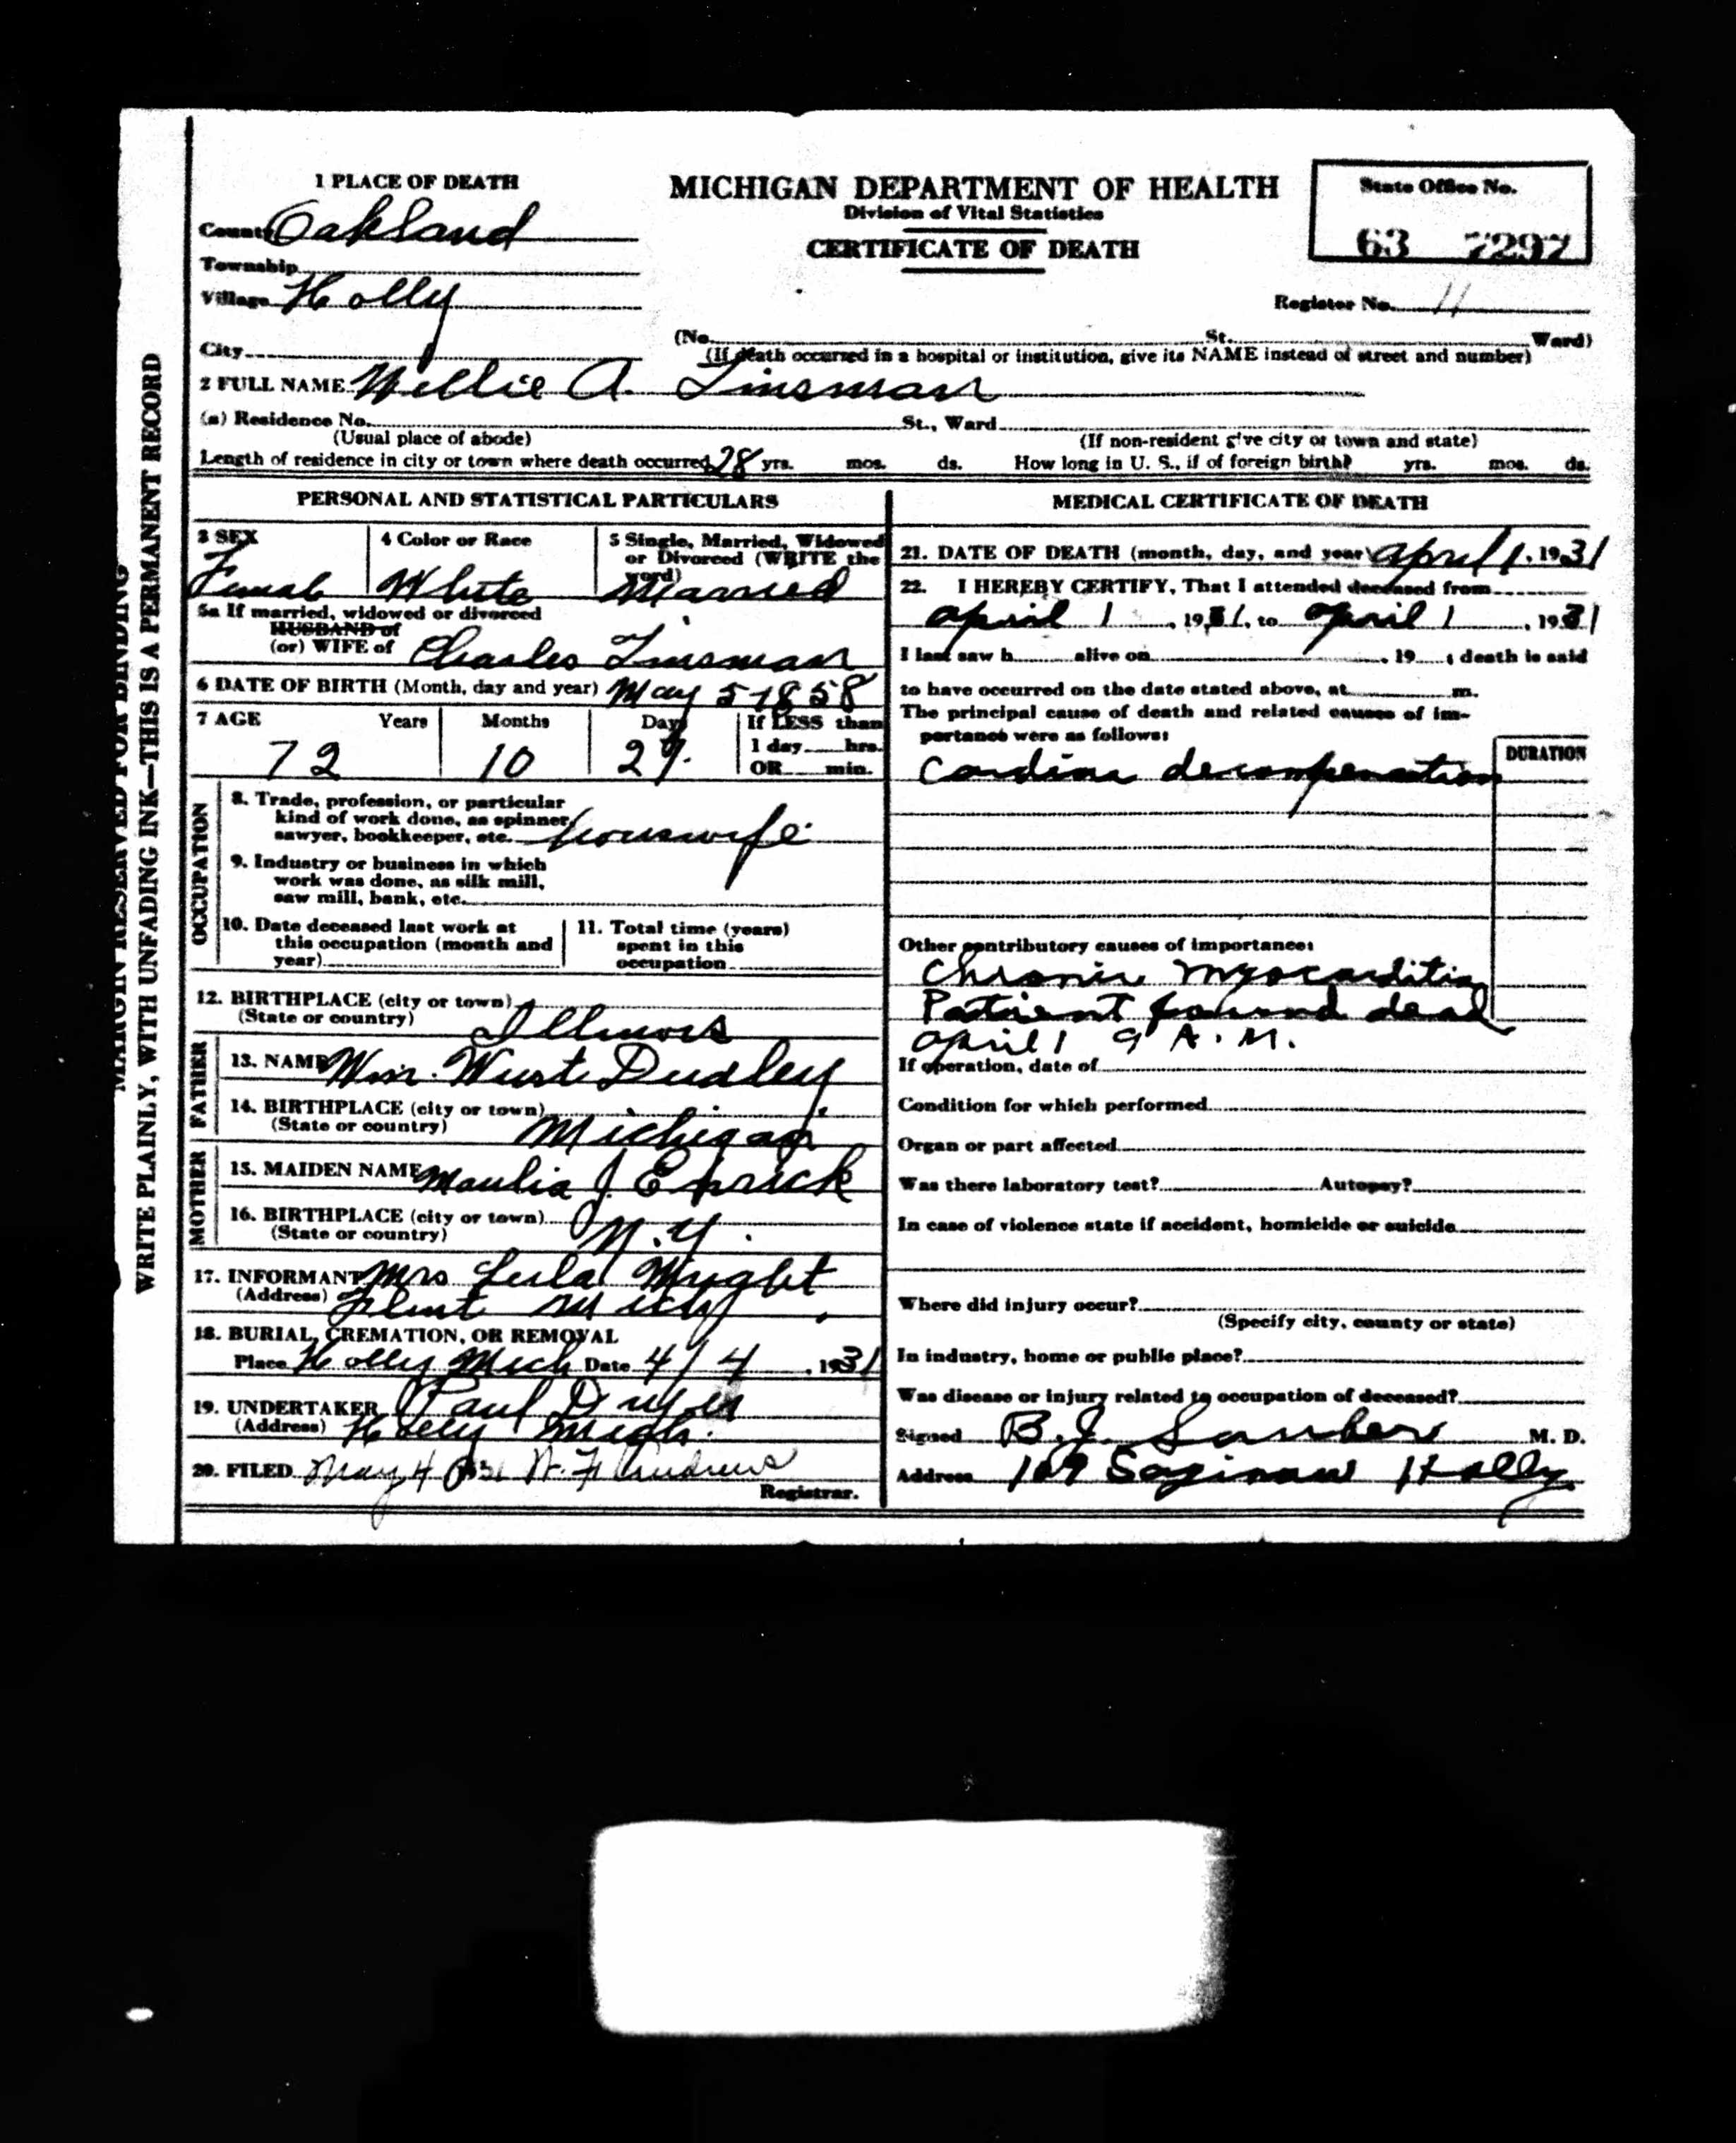 1 PLACE OF DEATH
County Oakland
Township
Village Holly
City
MICHIGAN DEPARTMENT OF HEALTH
Division of Vital Statistics
CERTIFICATE OF DEATH
State Office No.
63 7297
Register No. 11
(No. St. Ward)
(If death occurred in a hospital or institution, give its NAME instead of street and number)
2 FULL NAME Willie A. Tinsman
(a) Residence No. St., Ward
(Usual place of abode) (If non-resident give city or town and state)
Length of residence in city or town where death occurred 28 yrs. mos. ds. How long in U. S., if of foreign birth? yrs. mos. ds.
MARGIN RESERVED FOR BINDING
WRITE PLAINLY, WITH UNFADING INK—THIS IS A PERMANENT RECORD
PERSONAL AND STATISTICAL PARTICULARS
3 SEX
Female
4 Color or Race
White
5 Single, Married, Widowed
or Divorced (WRITE the
word)
Married
5a If married, widowed or divorced
HUSBAND of
(or) WIFE of Charles Tinsman
6 DATE OF BIRTH (Month, day and year) May 5 1858
7 AGE Years Months Days
72 10 27
If LESS than
1 day hrs.
OR min.
OCCUPATION
8. Trade, profession, or particular
kind of work done, as spinner,
sawyer, bookkeeper, etc. housewife
9. Industry or business in which
work was done, as silk mill,
saw mill, bank, etc.
10. Date deceased last work at
this occupation (month and
year)
11. Total time (years)
spent in this
occupation
12. BIRTHPLACE (city or town)
(State or country) Illinois
FATHER
13. NAME Wm. Dudley
14. BIRTHPLACE (city or town)
(State or country) Michigan
MOTHER
15. MAIDEN NAME J.
16. BIRTHPLACE (city or town)
(State or country) N.Y.
17. INFORMANT Mrs Lula Wright
(Address) Flint Mich
18. BURIAL, CREMATION, OR REMOVAL
Place Holly Mich Date 4/4, 1931
19. UNDERTAKER Paul Dryer
(Address) Holly Mich.
20. FILED May 4 1931 Andrews
Registrar.
MEDICAL CERTIFICATE OF DEATH
21. DATE OF DEATH (month, day, and year) April 1, 1931
22. I HEREBY CERTIFY, That I attended deceased from
April 1, 1931, to April 1, 1931
I last saw h alive on , 19 ; death is said
to have occurred on the date stated above, at m.
The principal cause of death and related causes of im-
portance were as follows:
DURATION
Cardiac decompensation
Other contributory causes of importance:
Chronic Myocarditis
Patient found dead
April 1 9 A.M.
If operation, date of
Condition for which performed
Organ or part affected
Was there laboratory test? Autopsy?
In case of violence state if accident, homicide or suicide
Where did injury occur?
(Specify city, county or state)
In industry, home or public place?
Was disease or injury related to occupation of deceased?
Signed B.J. M. D.
Address 109 Saginaw Holly